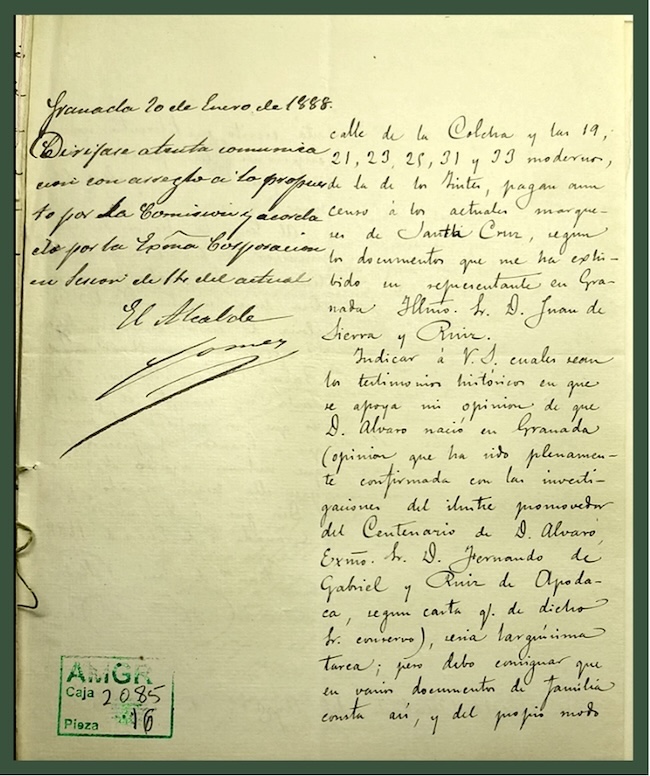 Granada 20 de Enero de 1888.
Dirijase atenta comunica
cion con arreglo á lo propues
to por la Comision y acorda
do por la Exma Corporacion
en Sesion de 14 del actual
El Alcalde
Gomez
calle de la Colcha y las 19,
21, 23, 25, 31 y 33 modernos,
de la de los Tintes, pagan aun
censo á los actuales marque-
ses de Santa Cruz, segun
los documentos que me ha exhi-
bido su representante en Gra-
nada Illmo. Sr. D. Juan de
Sierra y Ruiz.
Indicar á V. S. cuales sean
los testimonios históricos en que
se apoya mi opinion de que
D. Alvaro nació en Granada
(opinion que ha sido plenamen-
te confirmada con las investi-
gaciones del ilustre promovedor
del Centenario de D. Alvaro,
Exmo. Sr. D. Fernando de
Gabriel y Ruiz de Apoda-
ca, segun carta q. de dicho
Sr. conservo), seria larguísima
tarea; pero debo consignar que
en varios documentos de familia
consta así, y del propio modo
AMGR
Caja 2085
Pieza 16